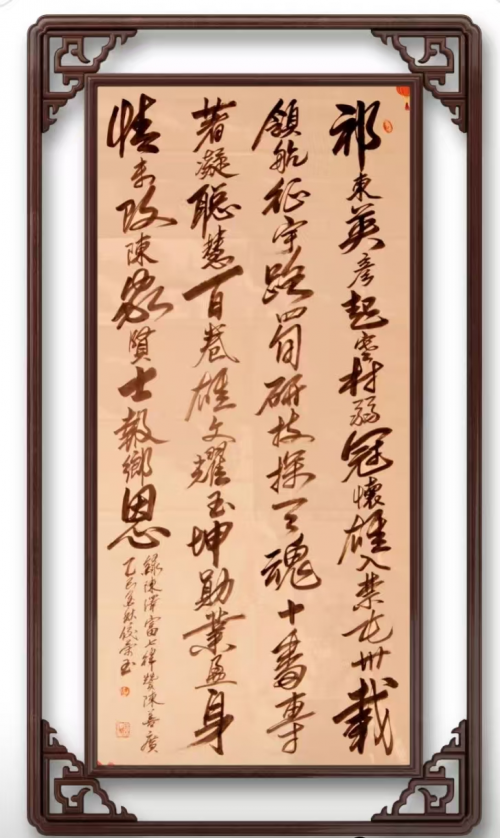 祁東英彥起村弱冠懷雄入禁屯卅載
領航征宇路四旬研技探天魂十番專
著凝聰慧百卷雄文耀玉坤勛業盈身
情未改陳家賢士報鄉恩
錄陳澤富七律贊陳善廣
乙巳孟秋